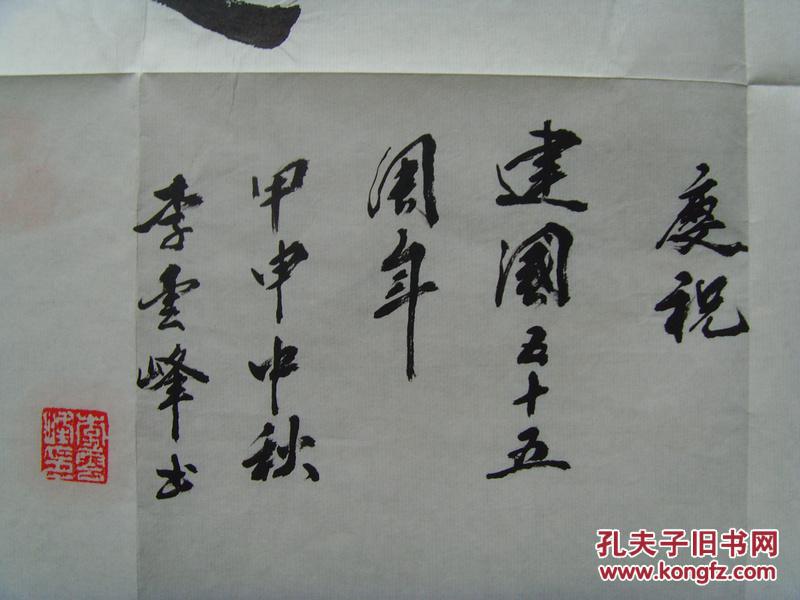 慶祝
建國五十五
周年
甲申中秋
李雲峰书
李雲
峰印
孔夫子旧书网
www.kongfz.com